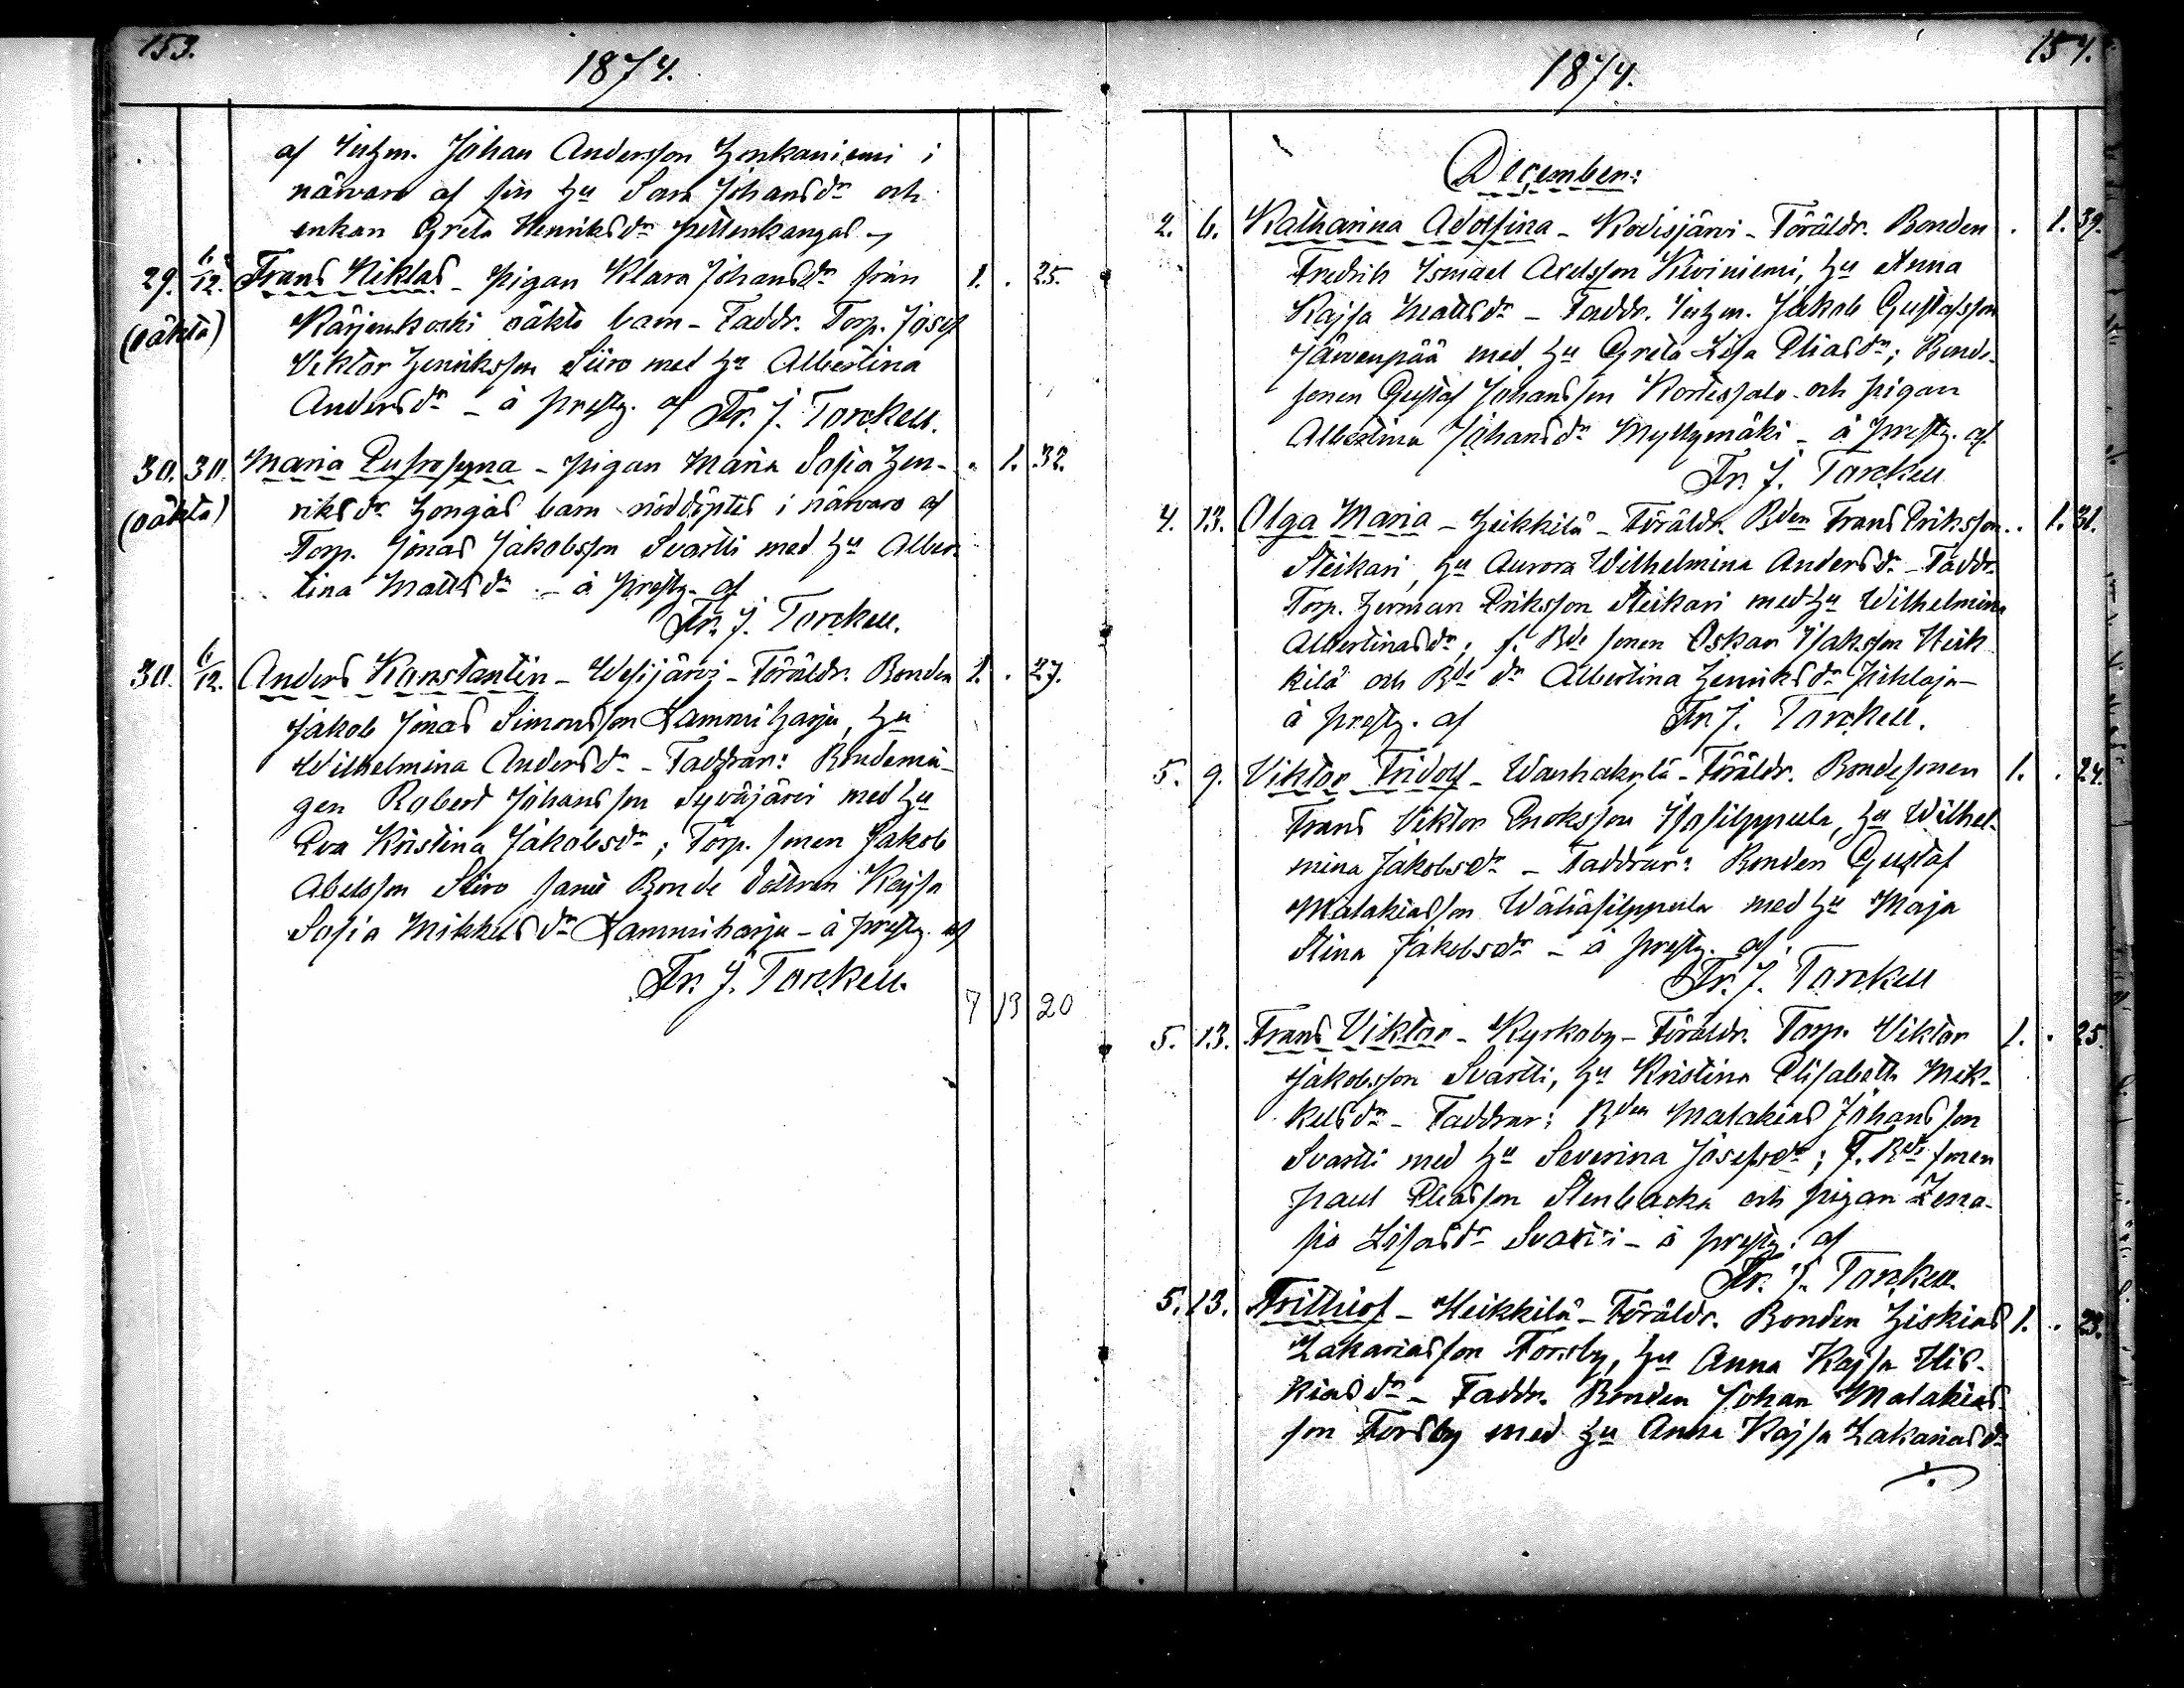 153.
1874.
af Inhm. Johan Andersson Honkaniemi i
närvaro af sin hu Sara Johansdr och
enkan Greta Henriksdr Pettenkangas
29. 6/12. Frans Niklas - Pigan Klara Johansdr från 1. . 25.
(oäkta) Kärjenkoski oäkta barn - Faddr. Torp. Josef
Viktor Henriksson Siiro med hu Albertina
Andersdr - å prestg. af Fr. J. Torckell.
30. 30. Maria Eufrosyna - pigan Maria Sofia Hen- . 1. 32.
(oäkta) riksdr Hongas barn nöddöptes i närvaro af
Torp. Jonas Jakobsson Svartti med hu Alber-
tina Mattsdr - å prestg. af
Fr. J. Torckell.
30. 6/12. Anders Konstantin - Wesijärvi - Föräldr. Bonden 1. . 27.
Jakob Jonas Simonsson Lammiharju, hu
Wilhelmina Andersdr - Faddrar: Bondemå-
gen Robert Johansson Syväjärvi med hu
Eva Kristina Jakobsdr; Torp. sonen Jakob
Abelsson Siiro samt Bonde dottren Kajsa
Sofia Mikkelsdr Lammiharju - å prestg. af
Fr. J. Torckell.
7 13 20
154.
1874.
December:
2. 6. Katharina Adolfina - Kodisjärvi - Föräldr. Bonden . 1. 39.
Fredrik Ismael Axelsson Kiviniemi, hu Anna
Kajsa Mattsdr - Faddr. Inhm. Jakob Gustafsson
Järvenpää med hu Greta Lisa Eliasdr; Bonde-
sonen Gustaf Johansson Kortessalo och pigan
Albertina Johansdr Myllymäki - å prestg. af
Fr. J. Torckell
4. 13. Olga Maria - Heikkilä - Föräldr. Bden Frans Eriksson . 1. 31.
Steikari, hu Aurora Wilhelmina Andersdr - Faddr.
Torp. Herman Eriksson Steikari med hu Wilhelmina
Albertinasdr; f. Bde sonen Oskar Isaksson Heik
kilä och Bde dr Albertina Henriksdr Pihlaja -
å prestg. af Fr. J. Torckell.
5. 9. Viktor Fridolf - Wanhakylä - Föräldr. Bondesonen 1. . 24.
Frans Viktor Enoksson Isosilppula, hu Wilhel-
mina Jakobsdr - Faddrar: Bonden Gustaf
Malakiasson Wähäsilppula med hu Maja
Stina Jakobsdr - å prestg. af
Fr. J. Torckell
5. 13. Frans Viktor - Kyrkoby - Föräldr. Torp. Viktor 1. . 25.
Jakobsson Svartti, hu Kristina Elisabeth Mik-
kelsdr - Faddrar: Bden Malakias Johansson
Svartti med hu Severina Josefsdr; F. Bde sonen
Paul Eliasson Stenbacka och pigan
Lisasdr Svartti - å prestg. af
Fr. J. Torckell.
5. 13. Frithiof - Heikkilä - Föräldr. Bonden Hiskias 1. . 23.
Zakariasson Forsby, hu Anna Kajsa His-
kiasdr - Faddr. Bonden Johan Malakias-
son Forsby med hu Anna Kajsa Zakariasdr